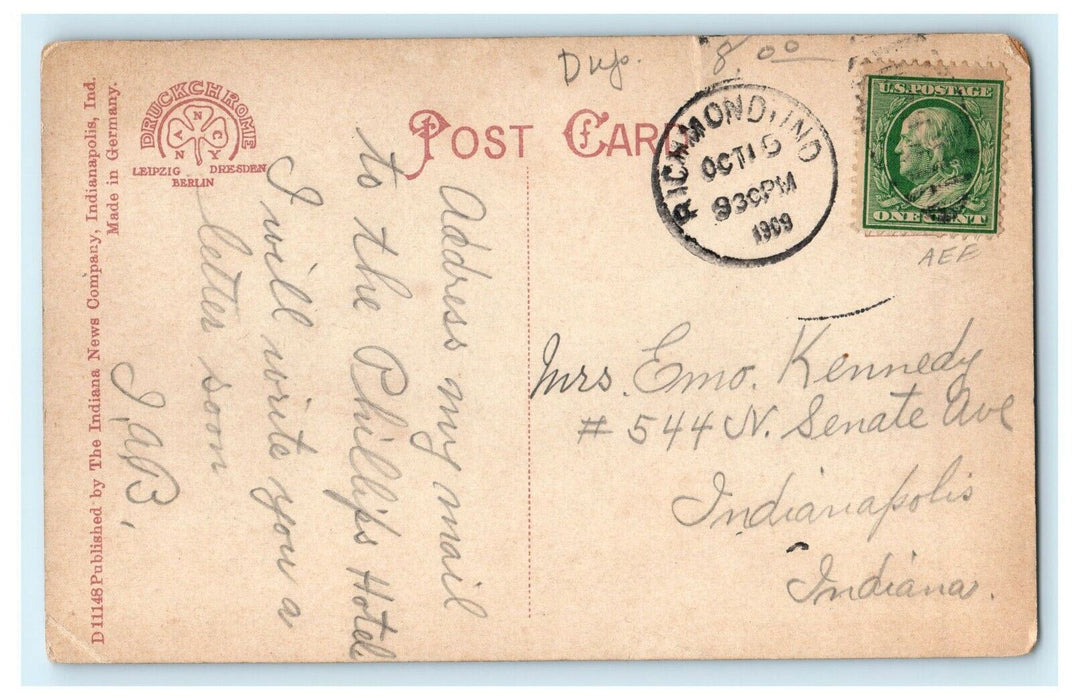 Dup.
8.00
DRUCKCHROME
N
V C
N Y
LEIPZIG DRESDEN
BERLIN
POST CARD
RICHMOND, IND
OCT 16
930PM
1909
U.S. POSTAGE
ONE CENT
AEF
D 11148 Published by The Indiana News Company, Indianapolis, Ind.
Made in Germany.
Address my mail
to the Phillips Hotel
I will write you a
letter soon
Mrs. Emo. Kennedy
# 544 N. Senate Ave
Indianapolis
Indiana.